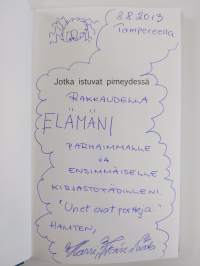 8.8.2013
Tampereella
Jotka istuvat pimeydessä
RAKKAUDELLA
ELÄMÄNI
PARHAIMMALLE
JA
ENSIMMÄISELLE
KIRJASTOTÄDILLENI.
"Unet ovat portteja"